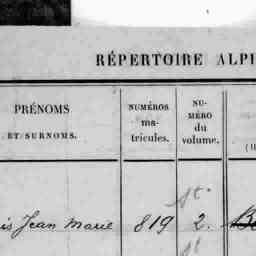 RÉPERTOIRE ALP
PRÉNOMS
ET SURNOMS.
NUMÉROS
ma-
tricules.
NU-
MÉRO
du
volume.
is Jean Marie 819 2.